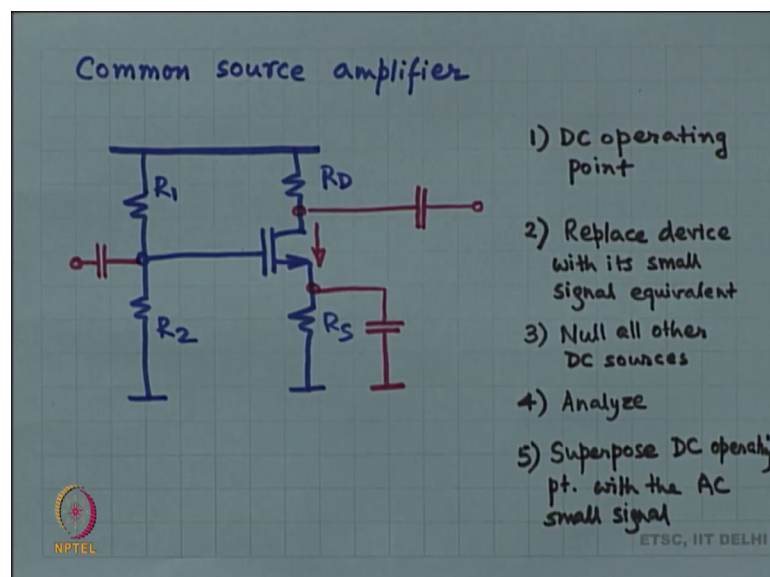 Common source amplifier
R1
RD
R2
RS
1) DC operating
point
2) Replace device
with its small
signal equivalent
3) Null all other
DC sources
4) Analyze
5) Superpose DC operating
pt. with the AC
small signal
NPTEL
ETSC, IIT DELHI